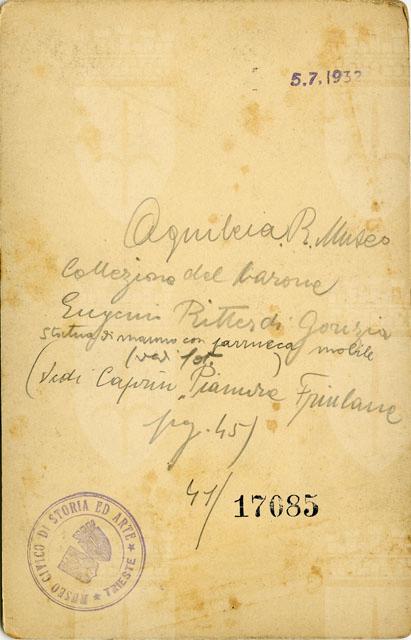 5.7.1932
Aquileia. R. Museo
Collezione del barone
Eugenio Ritter di Gorizia
statua di marmo con parrucca mobile
(vedi fot.)
(Vedi Caprin "Pianure Friulane
pg. 45)
41/ 17085
MUSEO CIVICO DI STORIA ED ARTE
★ TRIESTE ★